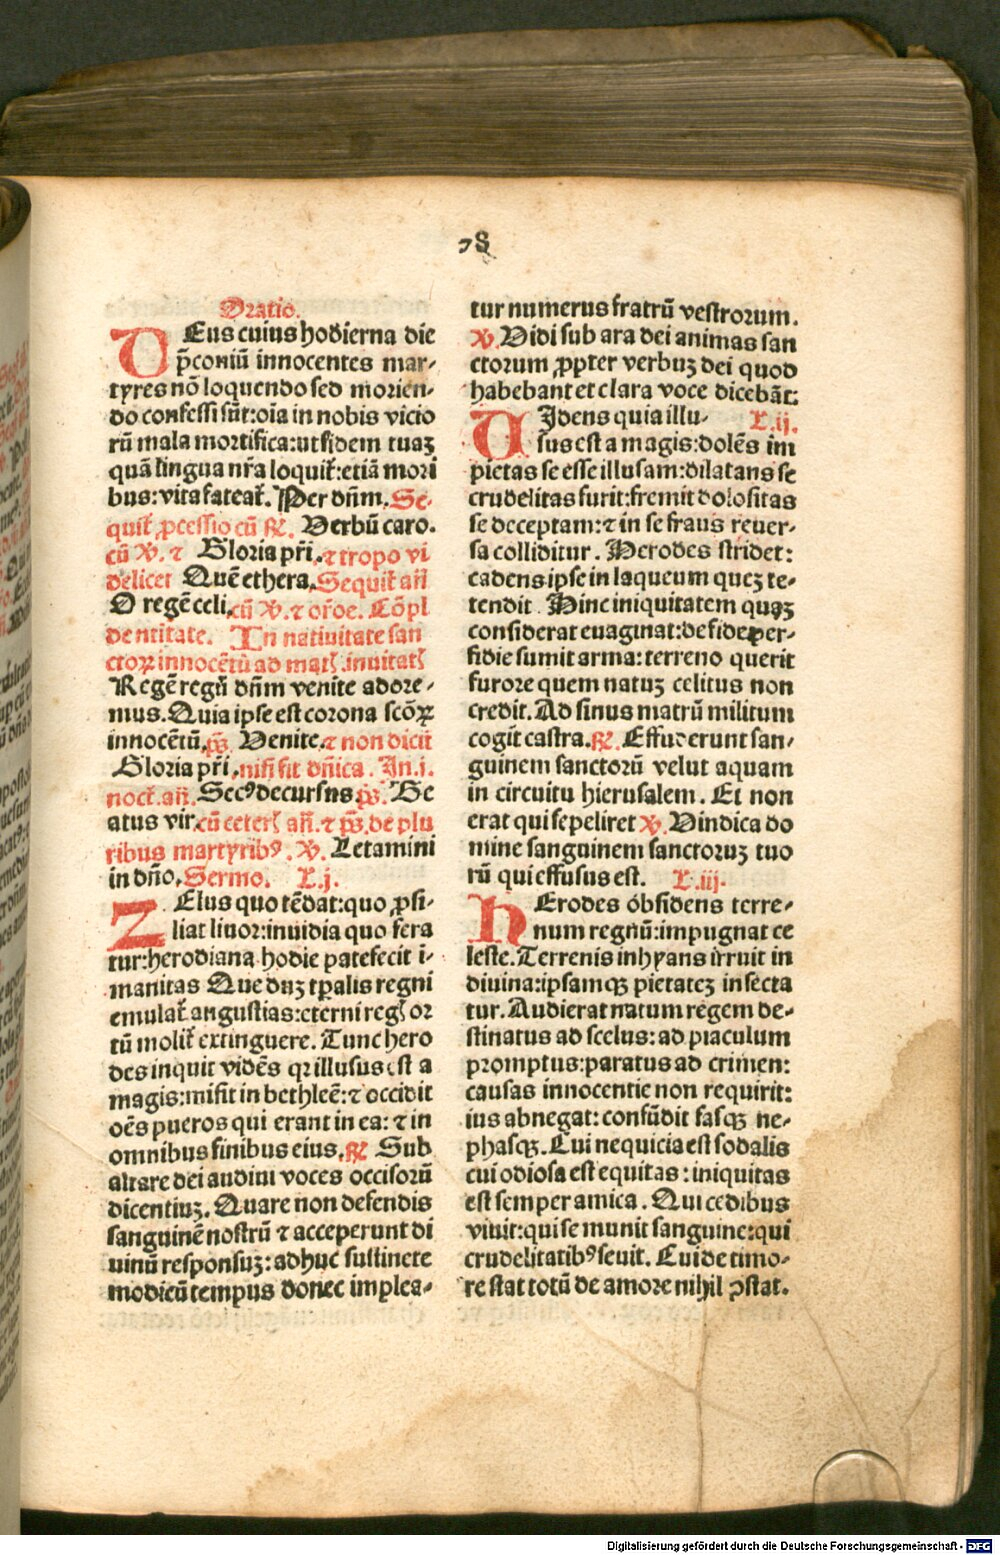 78
Oratio.
DEus cuius hodierna die
p̄coniū innocentes mar-
tyres nō loquendo sed morien-
do confessi sūt: oīa in nobis vicio
rū mala mortifica: ut fidem tuaꝫ
quā lingua nr̄a loquit̄: etiā mori
bus: vita fateat̄. Per dn̄m. Se-
quit̄ ꝓcessio cū ℟. Verbū caro.
cū ℣. ⁊ Gloria pr̄i. ⁊ tropo vi
delicet Quē ethera. Sequit̄ añ
O regē celi. cū ℣. ⁊ or̄oe. Cōpl
de ntitate. In nativitate san
ctoꝝ innocētū ad matꝭ. invitatꝭ
Regē regū dn̄m venite adore-
mus. Quia ipse est corona scōꝝ
innocētū. p̄s. Venite. ⁊ non dicit̄
Gloria pr̄i. nisi fit dn̄ica. In .i.
noct̄. añ. Secꝰ decursus p̄s. Be
atus vir. cū ceterꝭ añ. ⁊ p̄s. de plu
ribus martyribꝰ. ℣. Letamini
in dn̄o. Sermo. L.j.
ZElus quo tēdat: quo ꝓsi-
liat livor: invidia quo fera
tur: herodiana hodie patefecit ī-
manitas Que duꝫ tp̄alis regni
emulat̄ angustias: eterni regꝭ or
tū molit̄ extinguere. Tunc hero
des inquit vidēs qr illusus est a
magis: misit in bethleē: ⁊ occidit
oēs pueros qui erant in ea: ⁊ in
omnibus finibus eius. ℟ Sub
altare dei audivi voces occisorū
dicentiuꝫ. Quare non defendis
sanguinē nostrū ⁊ acceperunt di
uinū responsuꝫ: adhuc sustinete
modicū tempus donec implea-
tur numerus fratrū vestrorum.
℣. Vidi sub ara dei animas san
ctorum ꝓpter verbuꝫ dei quod
habebant et clara voce dicebāt:
UIdens quia illu- L.ij.
sus est a magis: dolēs im
pietas se esse illusam: dilatans se
crudelitas furit: fremit dolositas
se deceptam: ⁊ in se fraus rever-
sa colliditur. Herodes stridet:
cadens ipse in laqueum queꝫ te-
tendit Hinc iniquitatem quaꝫ
considerat evaginat: de fide ꝑer-
fidie sumit arma: terreno querit
furore quem natuꝫ celitus non
credit. Ad sinus matrū militum
cogit castra. ℟. Effuderunt san-
guinem sanctorū velut aquam
in circuitu hierusalem. Et non
erat qui sepeliret ℣. Vindica do
mine sanguinem sanctoruꝫ tuo
rū qui effusus est. L.iij.
HErodes obsidens terre-
num regnū: impugnat ce
leste. Terrenis inhyans irruit in
divina: ipsamqꝫ pietateꝫ insecta
tur. Audierat natum regem de-
stinatus ad scelus: ad piaculum
promptus: paratus ad crimen:
causas innocentie non requirit:
ius abnegat: confūdit fasqꝫ ne-
phasqꝫ. Cui nequicia est sodalis
cui odiosa est equitas: iniquitas
est semper amica. Qui cedibus
vivit: qui se munit sanguine: qui
crudelitatibꝰ sevit. Cui de timo-
re stat totū de amore nihil ꝓstat.
Digitalisierung gefördert durch die Deutsche Forschungsgemeinschaft - DFG